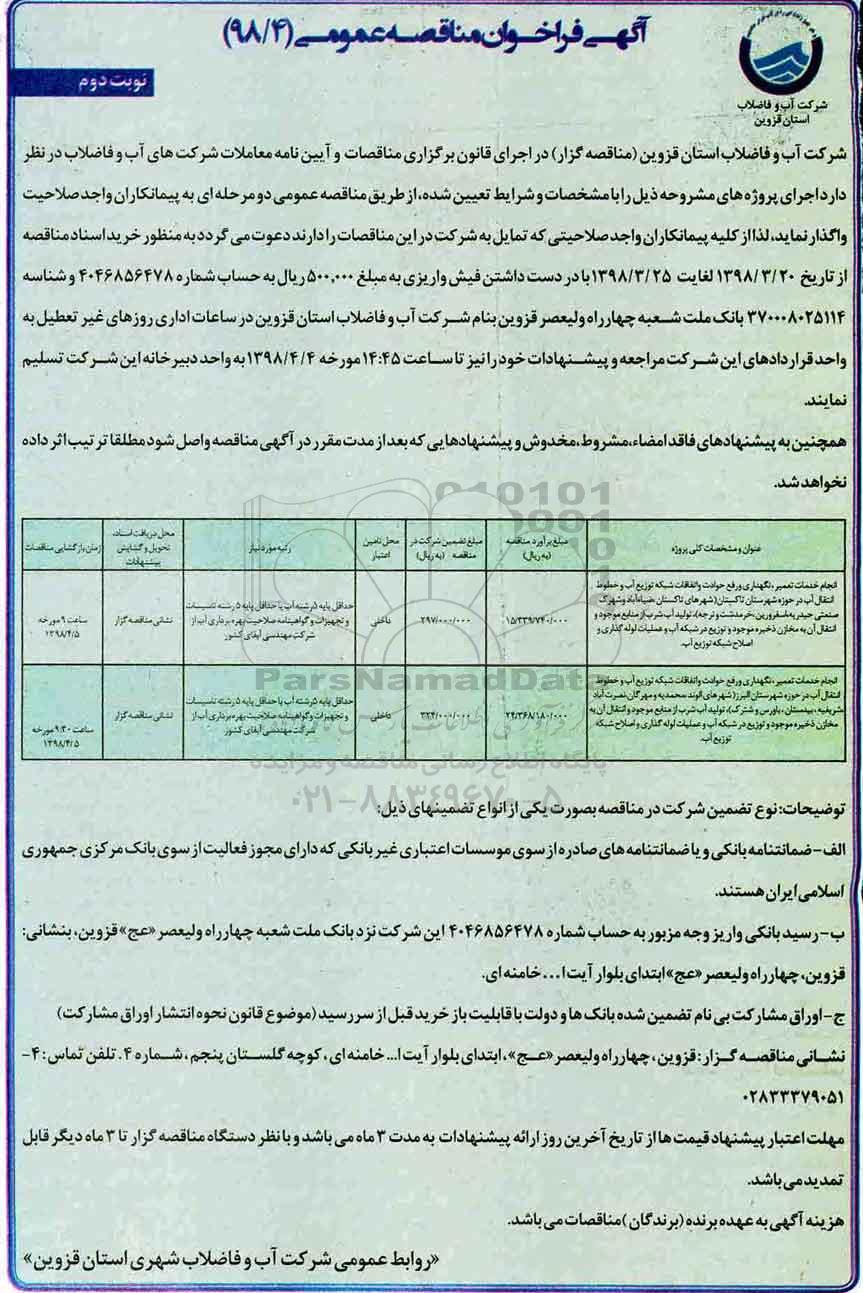 آگهی فراخوان مناقصه عمومی (۹۸/۴)
نوبت دوم
شرکت آب و فاضلاب
استان قزوین
شرکت آب و فاضلاب استان قزوین (مناقصه گزار) در اجرای قانون برگزاری مناقصات و آیین نامه معاملات شرکت های آب و فاضلاب در نظر
دارد اجرای پروژه های مشروحه ذیل را با مشخصات و شرایط تعیین شده، از طریق مناقصه عمومی دو مرحله ای به پیمانکاران واجد صلاحیت
واگذار نماید، لذا از کلیه پیمانکاران واجد صلاحیتی که تمایل به شرکت در این مناقصات را دارند دعوت می گردد به منظور خرید اسناد مناقصه
از تاریخ ۱۳۹۸/۳/۲۰ لغایت ۱۳۹۸/۳/۲۵ با در دست داشتن فیش واریزی به مبلغ ۵۰۰,۰۰۰ ریال به حساب شماره ۴۰۴۶۸۵۶۴۷۸ و شناسه
۳۷۰۰۰۸۰۲۵۱۱۴ بانک ملت شعبه چهارراه ولیعصر قزوین بنام شرکت آب و فاضلاب استان قزوین در ساعات اداری روزهای غیر تعطیل به
واحد قراردادهای این شرکت مراجعه و پیشنهادات خود را نیز تا ساعت ۱۴:۴۵ مورخه ۱۳۹۸/۴/۴ به واحد دبیرخانه این شرکت تسلیم
نمایند.
همچنین به پیشنهادهای فاقد امضاء، مشروط، مخدوش و پیشنهادهایی که بعد از مدت مقرر در آگهی مناقصه واصل شود مطلقا ترتیب اثر داده
نخواهد شد.
عنوان و مشخصات کلی پروژه
مبلغ برآورد مناقصه
(به ریال)
مبلغ تضمین شرکت در
مناقصه (به ریال)
محل تامین
اعتبار
رتبه مورد نیاز
محل دریافت اسناد،
تحویل و گشایش
پیشنهادات
زمان بازگشایی مناقصات
انجام خدمات تعمیر، نگهداری و رفع حوادث و اتفاقات شبکه توزیع آب و خطوط
انتقال آب در حوزه شهرستان تاکستان (شهرهای تاکستان، ضیاءآباد و شهرک
صنعتی حیدریه، اسفرورین، خرمدشت و نرجه)، تولید آب شرب از منابع موجود و
انتقال آن به مخازن ذخیره موجود و توزیع در شبکه آب و عملیات لوله گذاری و
اصلاح شبکه توزیع آب.
۱۵/۳۳۹/۷۴۰/۰۰۰
۲۹۷/۰۰۰/۰۰۰
داخلی
حداقل پایه ۵ رشته آب یا حداقل پایه ۵ رشته تاسیسات
و تجهیزات و گواهینامه صلاحیت بهره برداری آب از
شرکت مهندسی آبفای کشور
نشانی مناقصه گزار
ساعت ۹ مورخه
۱۳۹۸/۴/۵
انجام خدمات تعمیر، نگهداری و رفع حوادث و اتفاقات شبکه توزیع آب و خطوط
انتقال آب در حوزه شهرستان البرز (شهرهای الوند، محمدیه و مهرگان، نصرت آباد
شریفیه، بیدستان، ناورس و شترک)، تولید آب شرب از منابع موجود و انتقال آن به
مخازن ذخیره موجود و توزیع در شبکه آب و عملیات لوله گذاری و اصلاح شبکه
توزیع آب.
۲۴/۳۶۸/۱۸۰/۰۰۰
۳۲۴/۰۰۰/۰۰۰
داخلی
حداقل پایه ۵ رشته آب یا حداقل پایه ۵ رشته تاسیسات
و تجهیزات و گواهینامه صلاحیت بهره برداری آب از
شرکت مهندسی آبفای کشور
نشانی مناقصه گزار
ساعت ۹:۳۰ مورخه
۱۳۹۸/۴/۵
ParsNamadData
پایگاه اطلاع رسانی مناقصه و مزایده
۰۲۱-۸۸۳۴۹۶۷۰-۵
توضیحات: نوع تضمین شرکت در مناقصه بصورت یکی از انواع تضمینهای ذیل:
الف- ضمانتنامه بانکی و یا ضمانتنامه های صادره از سوی موسسات اعتباری غیر بانکی که دارای مجوز فعالیت از سوی بانک مرکزی جمهوری
اسلامی ایران هستند.
ب- رسید بانکی واریز وجه مزبور به حساب شماره ۴۰۴۶۸۵۶۴۷۸ این شرکت نزد بانک ملت شعبه چهارراه ولیعصر «عج» قزوین، بنشانی:
قزوین، چهارراه ولیعصر «عج» ابتدای بلوار آیت ا... خامنه ای.
ج- اوراق مشارکت بی نام تضمین شده بانک ها و دولت با قابلیت باز خرید قبل از سررسید (موضوع قانون نحوه انتشار اوراق مشارکت)
نشانی مناقصه گزار: قزوین، چهارراه ولیعصر «عج»، ابتدای بلوار آیت ا... خامنه ای، کوچه گلستان پنجم، شماره ۴. تلفن تماس: ۴-
۰۲۸۳۳۳۷۹۰۵۱
مهلت اعتبار پیشنهاد قیمت ها از تاریخ آخرین روز ارائه پیشنهادات به مدت ۳ ماه می باشد و با نظر دستگاه مناقصه گزار تا ۳ ماه دیگر قابل
تمدید می باشد.
هزینه آگهی به عهده برنده (برندگان) مناقصات می باشد.
«روابط عمومی شرکت آب و فاضلاب شهری استان قزوین»